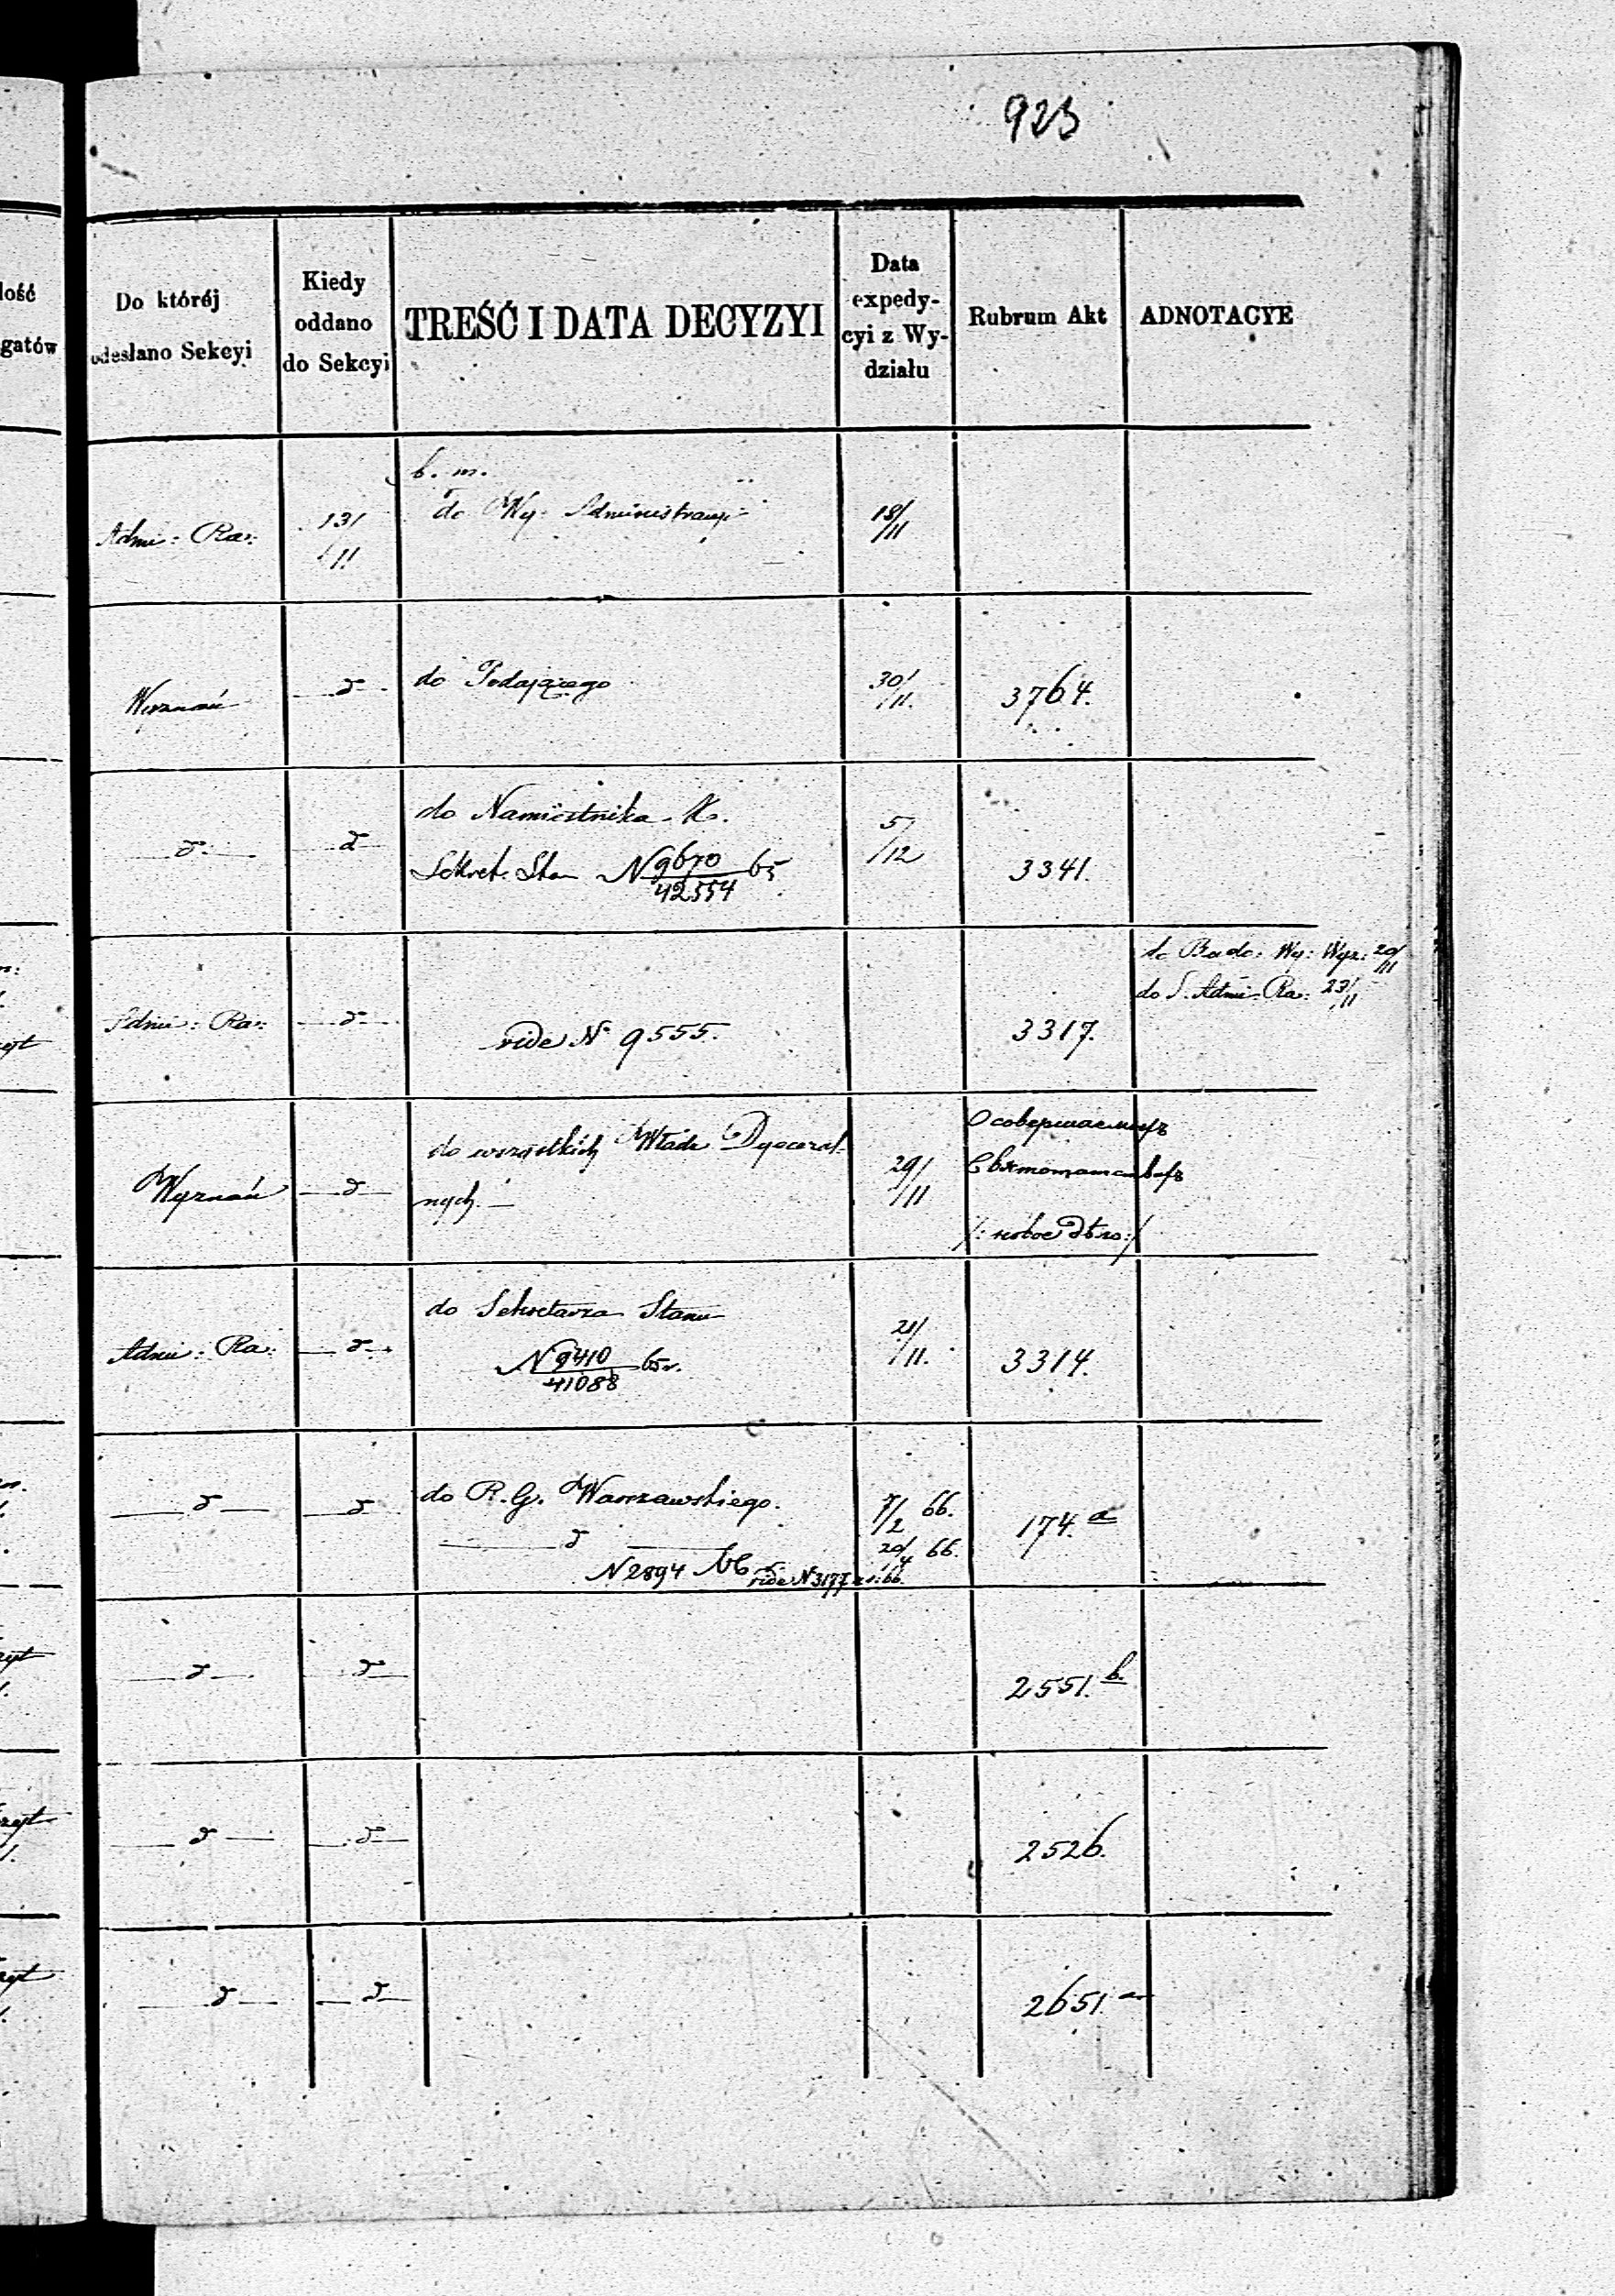 923
lość
gatów
Do której
odesłano Sekcyi
Kiedy
oddano
do Sekcyi
TREŚĆ I DATA DECYZYI
Data
expedy-
cyi z Wy-
działu
Rubrum Akt
ADNOTACYE
Admi: Ra:
13/
/11
b. m.
do Wy. Administracyi
18/
/11
Wyznań
d
do Podającego
30/
/11.
3764.
d
d
do Namiestnika K.
Sekret. Stan N 9670/42554 65
5/
/12
3341.
Admi: Ra:
d
vide N 9555.
3317.
do Wy: Wyz: 20/11
do S. Admi: Ra: 23/11
Wyznań
d
do wszystkich Władz Dyecezal-
nych.
29/
/11
О совершаемыхъ
Святотатствахъ
/: новое дѣло :/
Admi: Ra:
d
do Sekretarza Stanu
N 9410/41088 65 r.
21/
/11.
3314.
d
d
do R. G. Warszawskiego.
7/2 66.
174. a
d
20/4 66.
N 2894 vide N 3177 66.
d
d
2551. b.
d
d
2526.
d
d
2651.